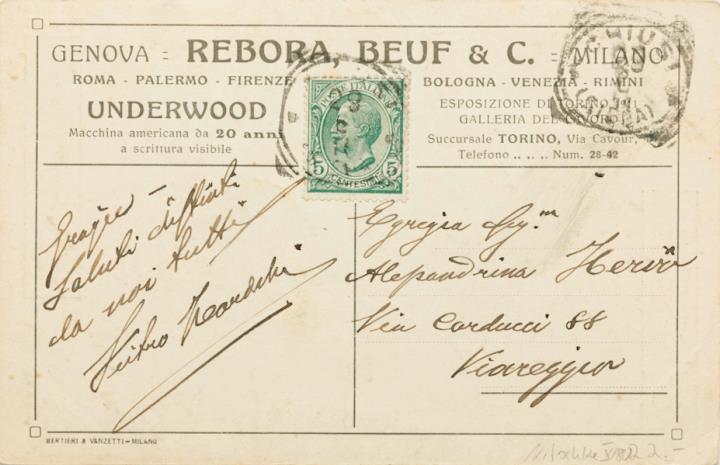 GENOVA = REBORA, BEUF & C. = MILANO
ROMA - PALERMO - FIRENZE
BOLOGNA - VENEZIA - RIMINI
UNDERWOOD
Macchina americana da 20 anni
a scrittura visibile
ESPOSIZIONE DI TORINO 1911
GALLERIA DEL LAVORO
Succursale TORINO, Via Cavour,
Telefono .. .. Num. 28-42
POSTE ITALIANE
5 5
CENTESIMI
CHIUSI
(SIENA)
Grazie -
Saluti distinti
da noi tutti
Egregia Sig.
Alessandrina
Via Carducci 88
Viareggio
BERTIERI & VANZETTI - MILANO
2.-